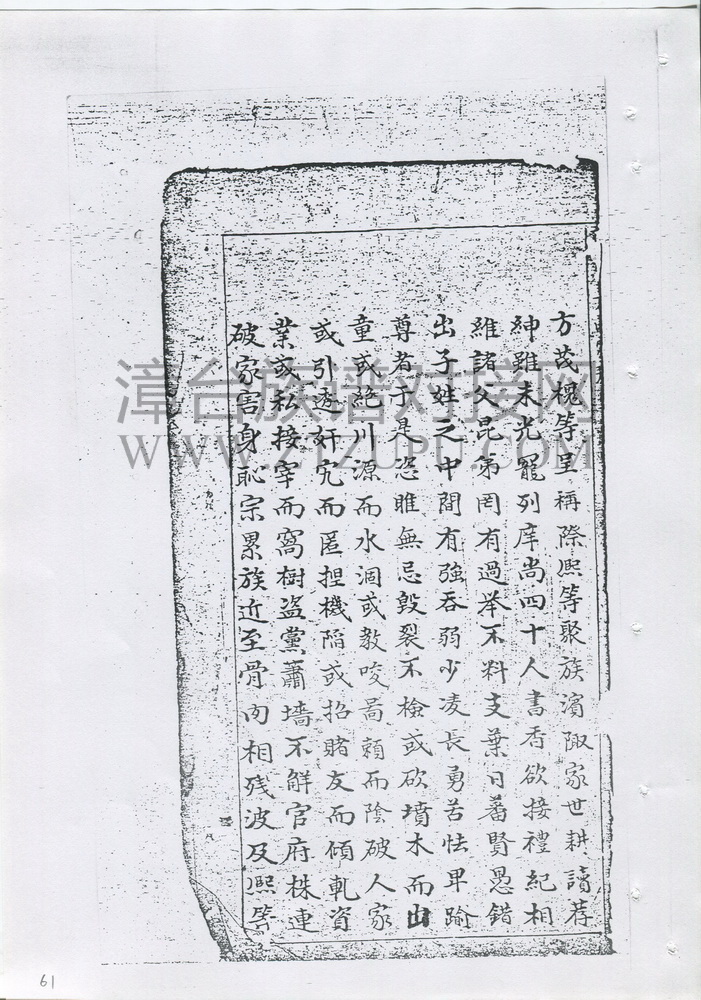 方茂槐等呈稱際熙等聚族濱陬家世耕讀荐
紳雖未光寵列庠尚四十人書香欲接禮紀相
維諸父昆弟罔有過举不料支葉日蕃賢愚錯
出子姓之中間有強吞弱少凌長勇苦怯卑踰
尊者于是恣睢無忌毀裂不檢或砍墳木而山
童或絕川源而水涸或教唆啚賴而陰破人家
或引逐奸宄而匿担機陷或招賭友而傾軋資
業或私接宰而窩樹盗黨蕭墻不解官府株連
破家害身恥宗累族近至骨肉相残波及熙等
漳台族谱对接网
WWW.ZTZUPU.COM
61